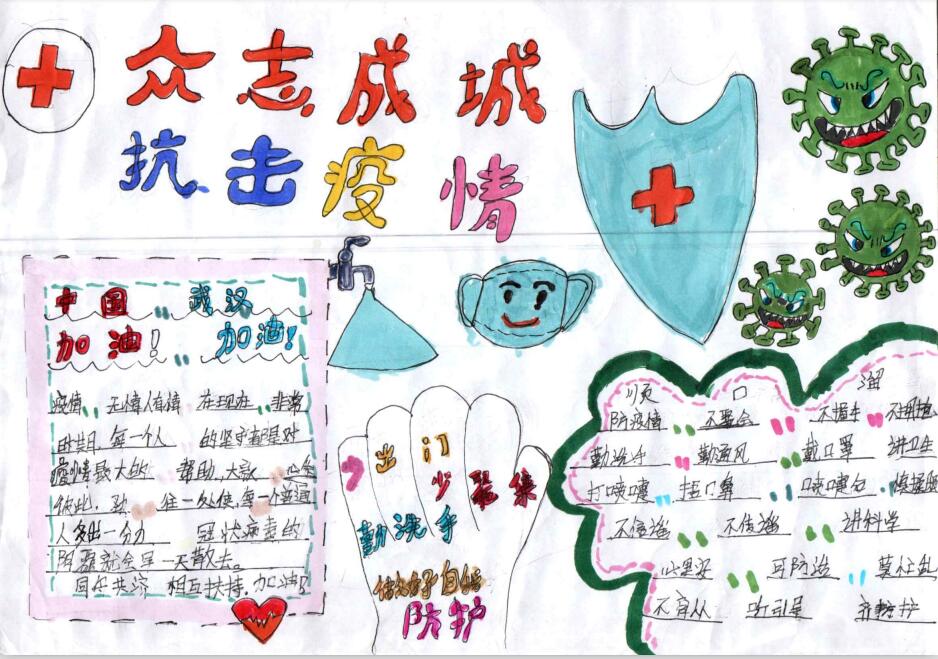 众志成城
抗击疫情
中国 武汉
加油! 加油!
疫情 无情人有情 在现在 非常
时期,每一个人 的坚守都是对
疫情最大的 帮助,大家 心系
彼此,致 往一处使,每一个普通
人多出一分力 冠状病毒的
阴霾就会早一天散去。
同舟共济 相互扶持,加油!
少出门
少聚集
勤洗手
做好自我
防护
顺口溜
防疫情 不聚会 不握手
勤洗手 勤通风 戴口罩 讲卫生
打喷嚏 捂口鼻
不信谣 不传谣 讲科学
可防治 莫狂乱
不盲从 听引导